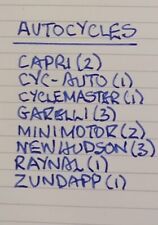 AUTOCYCLES
CAPRI (2)
CYC-AUTO (1)
CYCLEMASTER (1)
GARELLI (3)
MINIMOTOR (2)
NEW HUDSON (3)
RAYNAL (1)
ZUNDAPP (1)